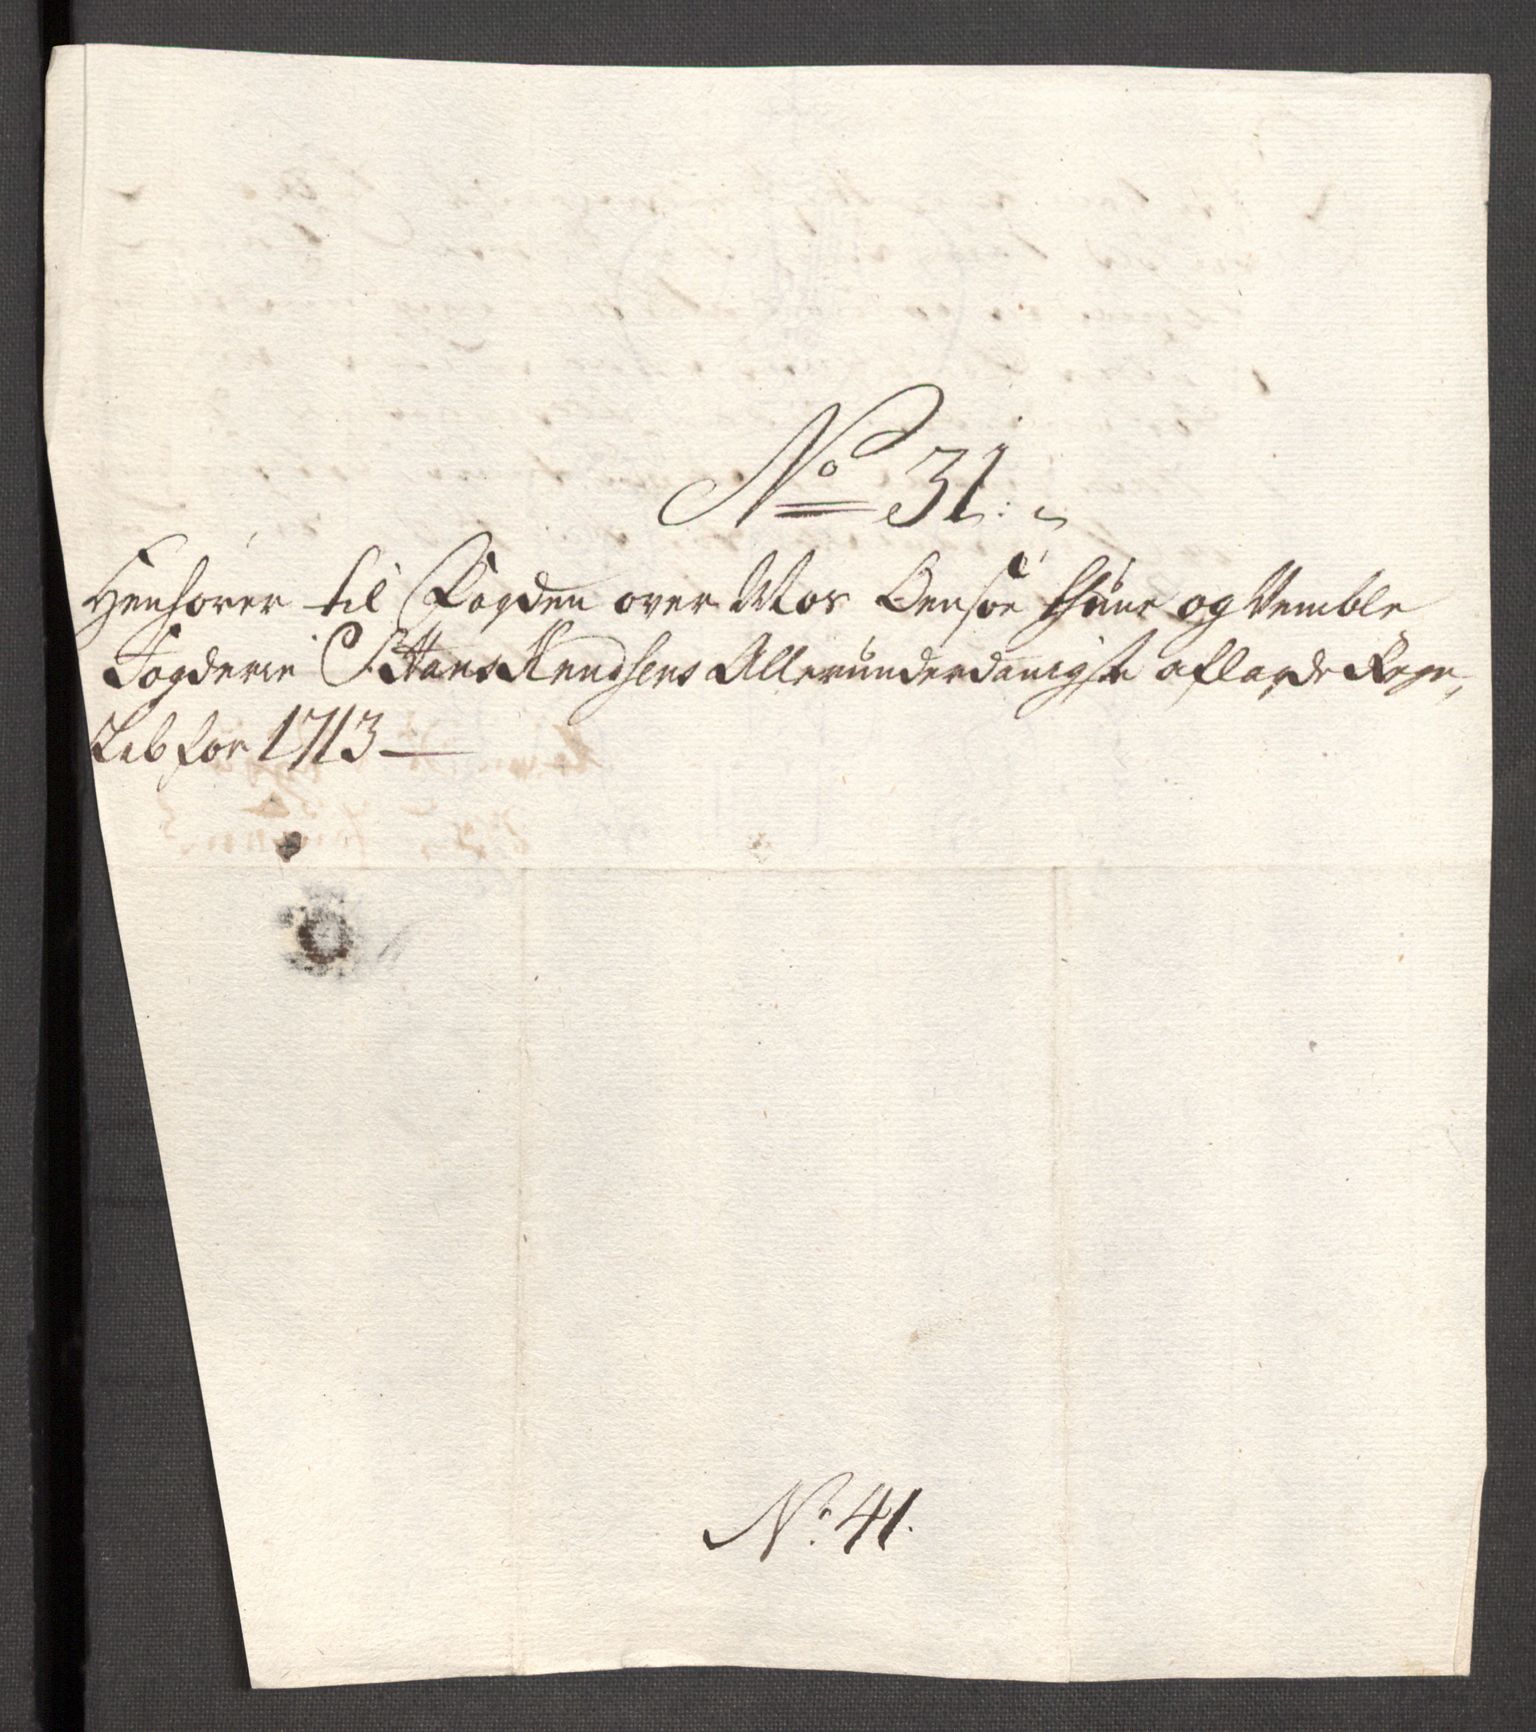 No 31.
Henhører til Fogden over Mos Onsøe thune og Vemble
Fogderie Sr Hans Knudsens Allerunderdanigste aflagde Regn,,
skab for 1713
No. 41.